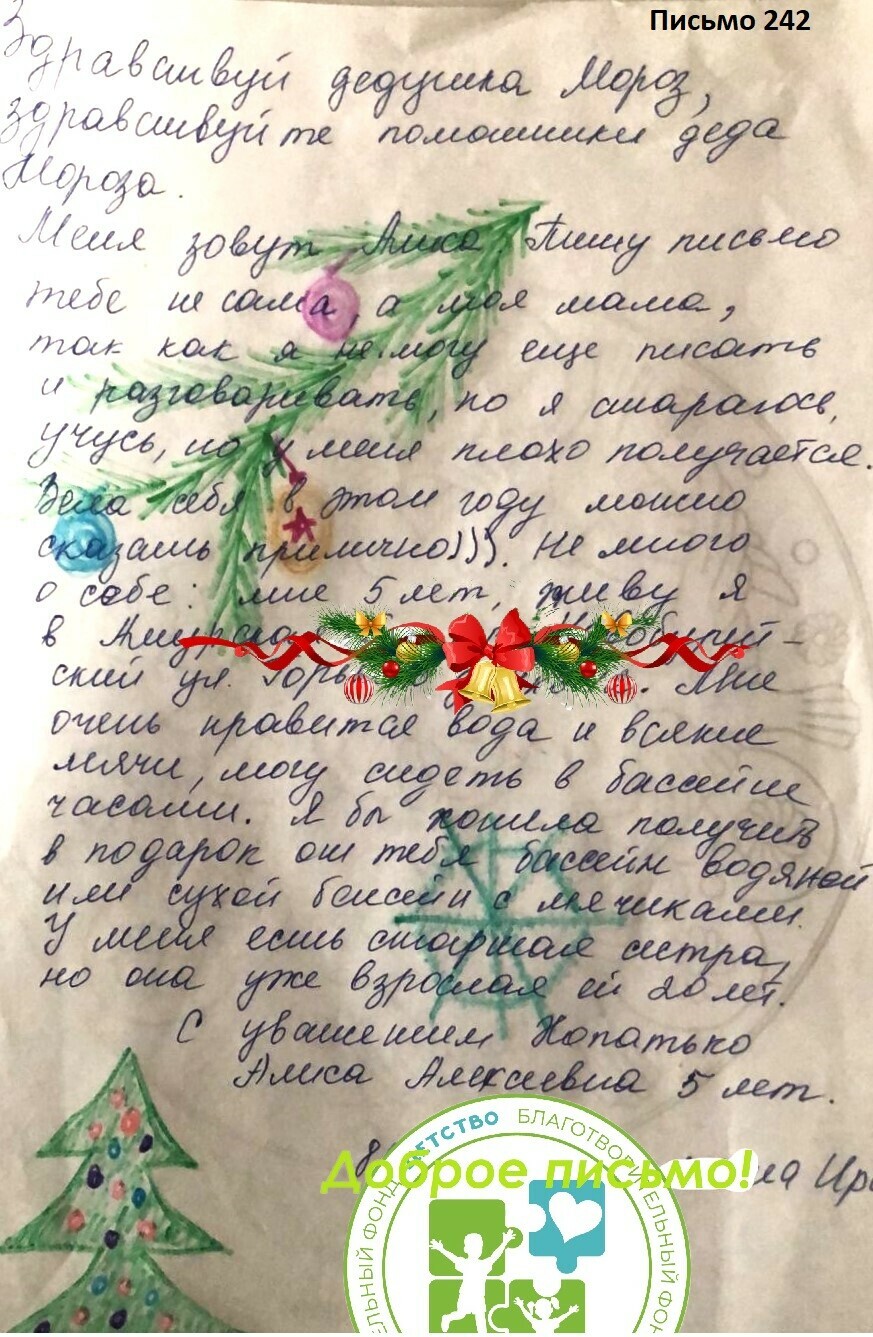 Письмо 242
Здравствуй дедушка Мороз,
здравствуйте помошники деда
Мороза.
Меня зовут Алиса. Пишу письмо
тебе не сама, а моя мама,
так как я не могу еще писать
и разговаривать, но я стараюсь,
учусь, но у меня плохо получается.
Вела себя в этом году можно
сказать прилично))). Не много
о себе: мне 5 лет, живу я
в
ский ул. Мне
очень нравится вода и всякие
мячи, могу сидеть в бассейне
часами. Я бы хотела получить
в подарок от тебя бассейн водяной
или сухой бассейн с мячиками.
У меня есть старшая сестра,
но она уже взрослая ей 20 лет.
С уважением Копатько
Алиса Алексеевна 5 лет.
Доброе письмо!
ДЕТСТВО БЛАГОТВОРИТЕЛЬНЫЙ ФОНД